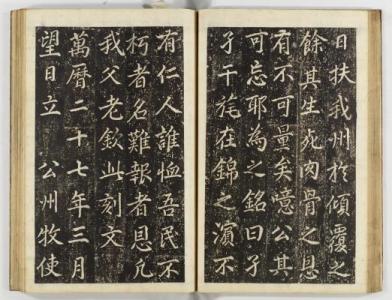 日扶我州於傾覆之
餘其生死肉骨之恩
有不可量矣噫公其
可忘耶為之銘曰孑
孑干旄在錦之濵不
有仁人誰恤吾民不
朽者名難報者恩凡
我父老欽此刻文
萬曆二十七年三月
望日立 公州牧使